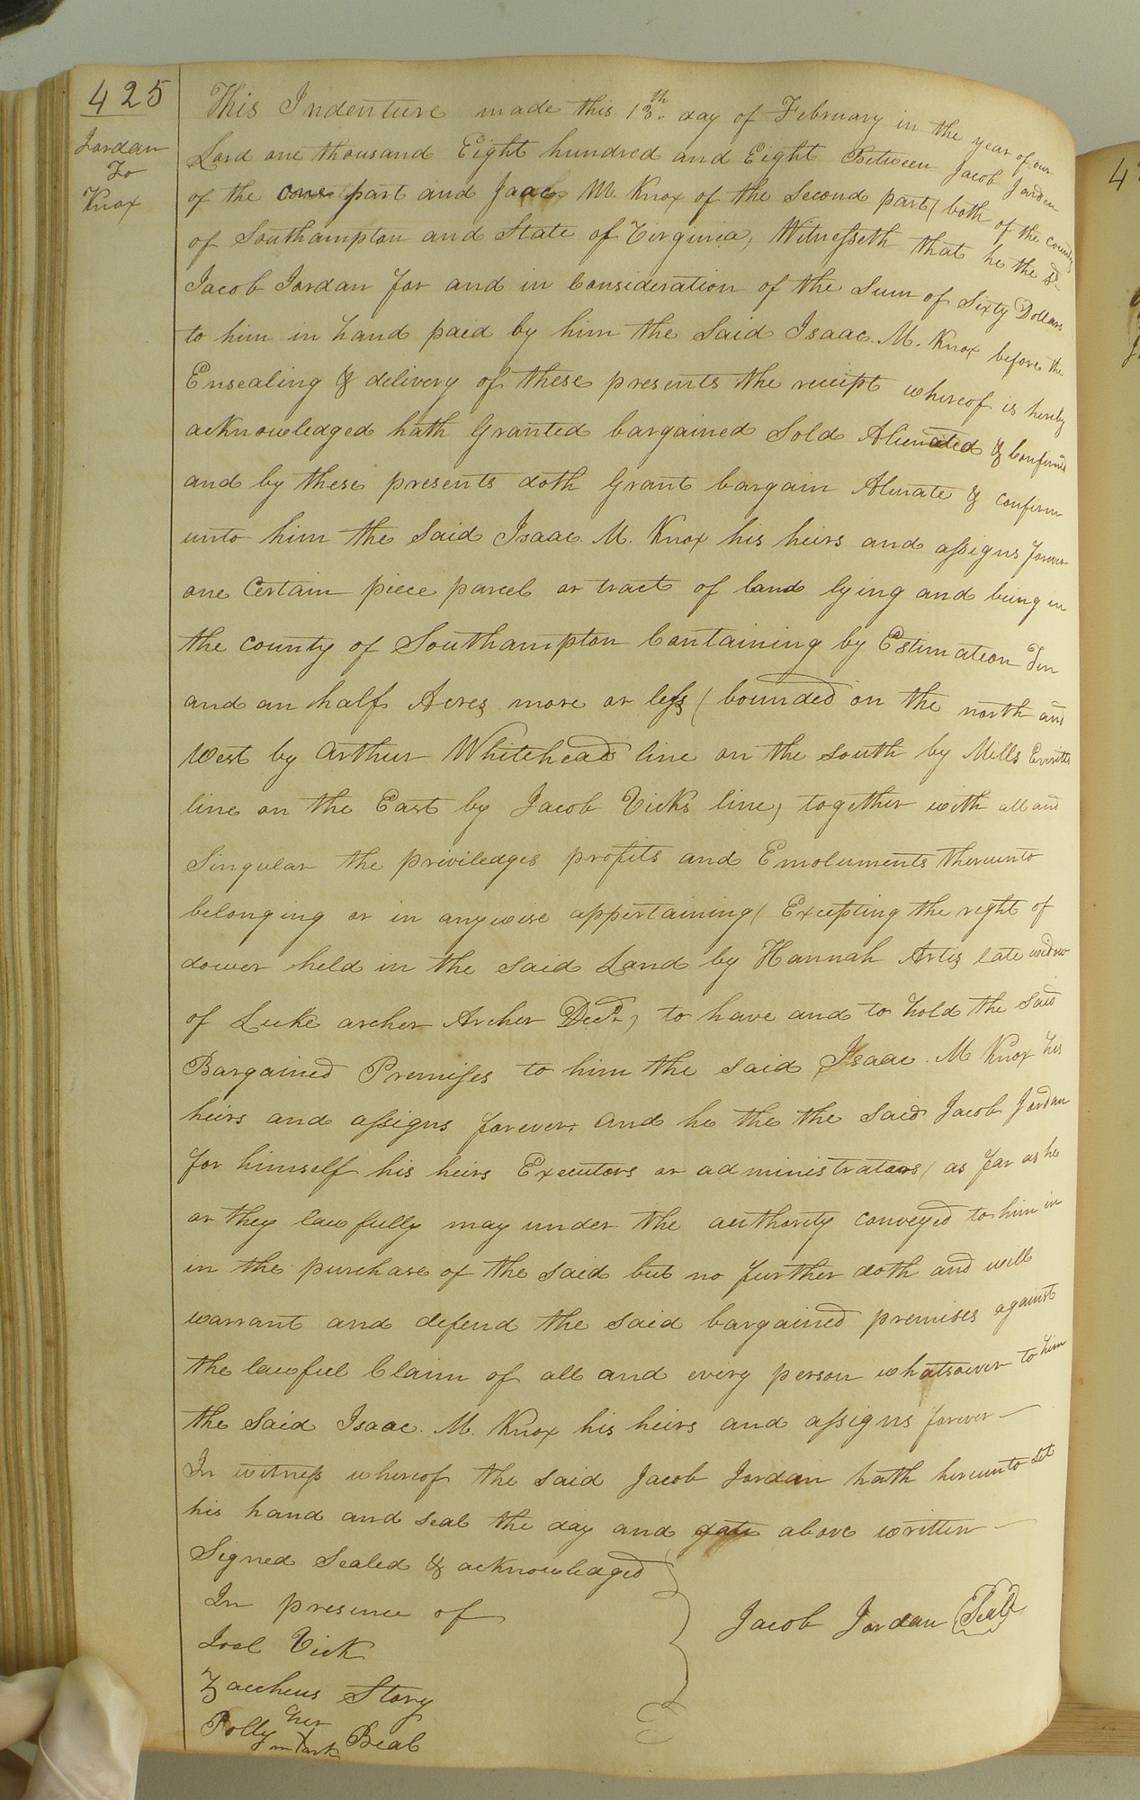 425
Jordan
To
Knox
This Indenture made this 13th day of February in the year of our
Lord one thousand Eight hundred and Eight Between Jacob Jordan
of the one part and Isaac M. Knox of the Second part (both of the County
of Southampton and State of Virginia) Witnesseth that he the sd.
Jacob Jordan for and in Consideration of the Sum of Sixty Dollars
to him in hand paid by him the Said Isaac. M. Knox before the
Ensealing & delivery of these presents the receipt whereof is hereby
acknowledged hath Granted bargained Sold Alienated & Confirmed
and by these presents doth Grant bargain Alinate & confirm
unto him the Said Isaac. M. Knox his heirs and assigns forever
one Certain piece parcel or tract of land lying and being in
the county of Southampton Containing by Estimation Ten
and an half Acres more or less (bounded on the north and
West by Arthur Whitehead line on the south by Mills Everitts
line on the East by Jacob Vicks line) together with all and
Singular the priviledges profits and Emoluments thereunto
belonging or in anywise appertaining (Excepting the right of
dower held in the said Land by Hannah Artis late widow
of Luke archer Archer Decd.) to have and to hold the Said
Bargained Premises to him the said Isaac. M Knox his
heirs and assigns forever. and he the the Said Jacob Jordan
for himself his heirs Executors or administrators (as far as he
or they lawfully may under the authority conveyed to him in
in the purchase of the said but no further doth and will
warrant and defend the said bargained premises against
the lawful Claim of all and every person whatsoever to him
the Said Isaac. M. Knox his heirs and assigns forever
In witness whereof the said Jacob Jordan hath hereunto set
his hand and seal the day and date above written
Signed Sealed & acknowledged
In presence of
Jacob Jordan Seal
Joel Vick
Zaccheus Story
her
Polly X Beal
mark